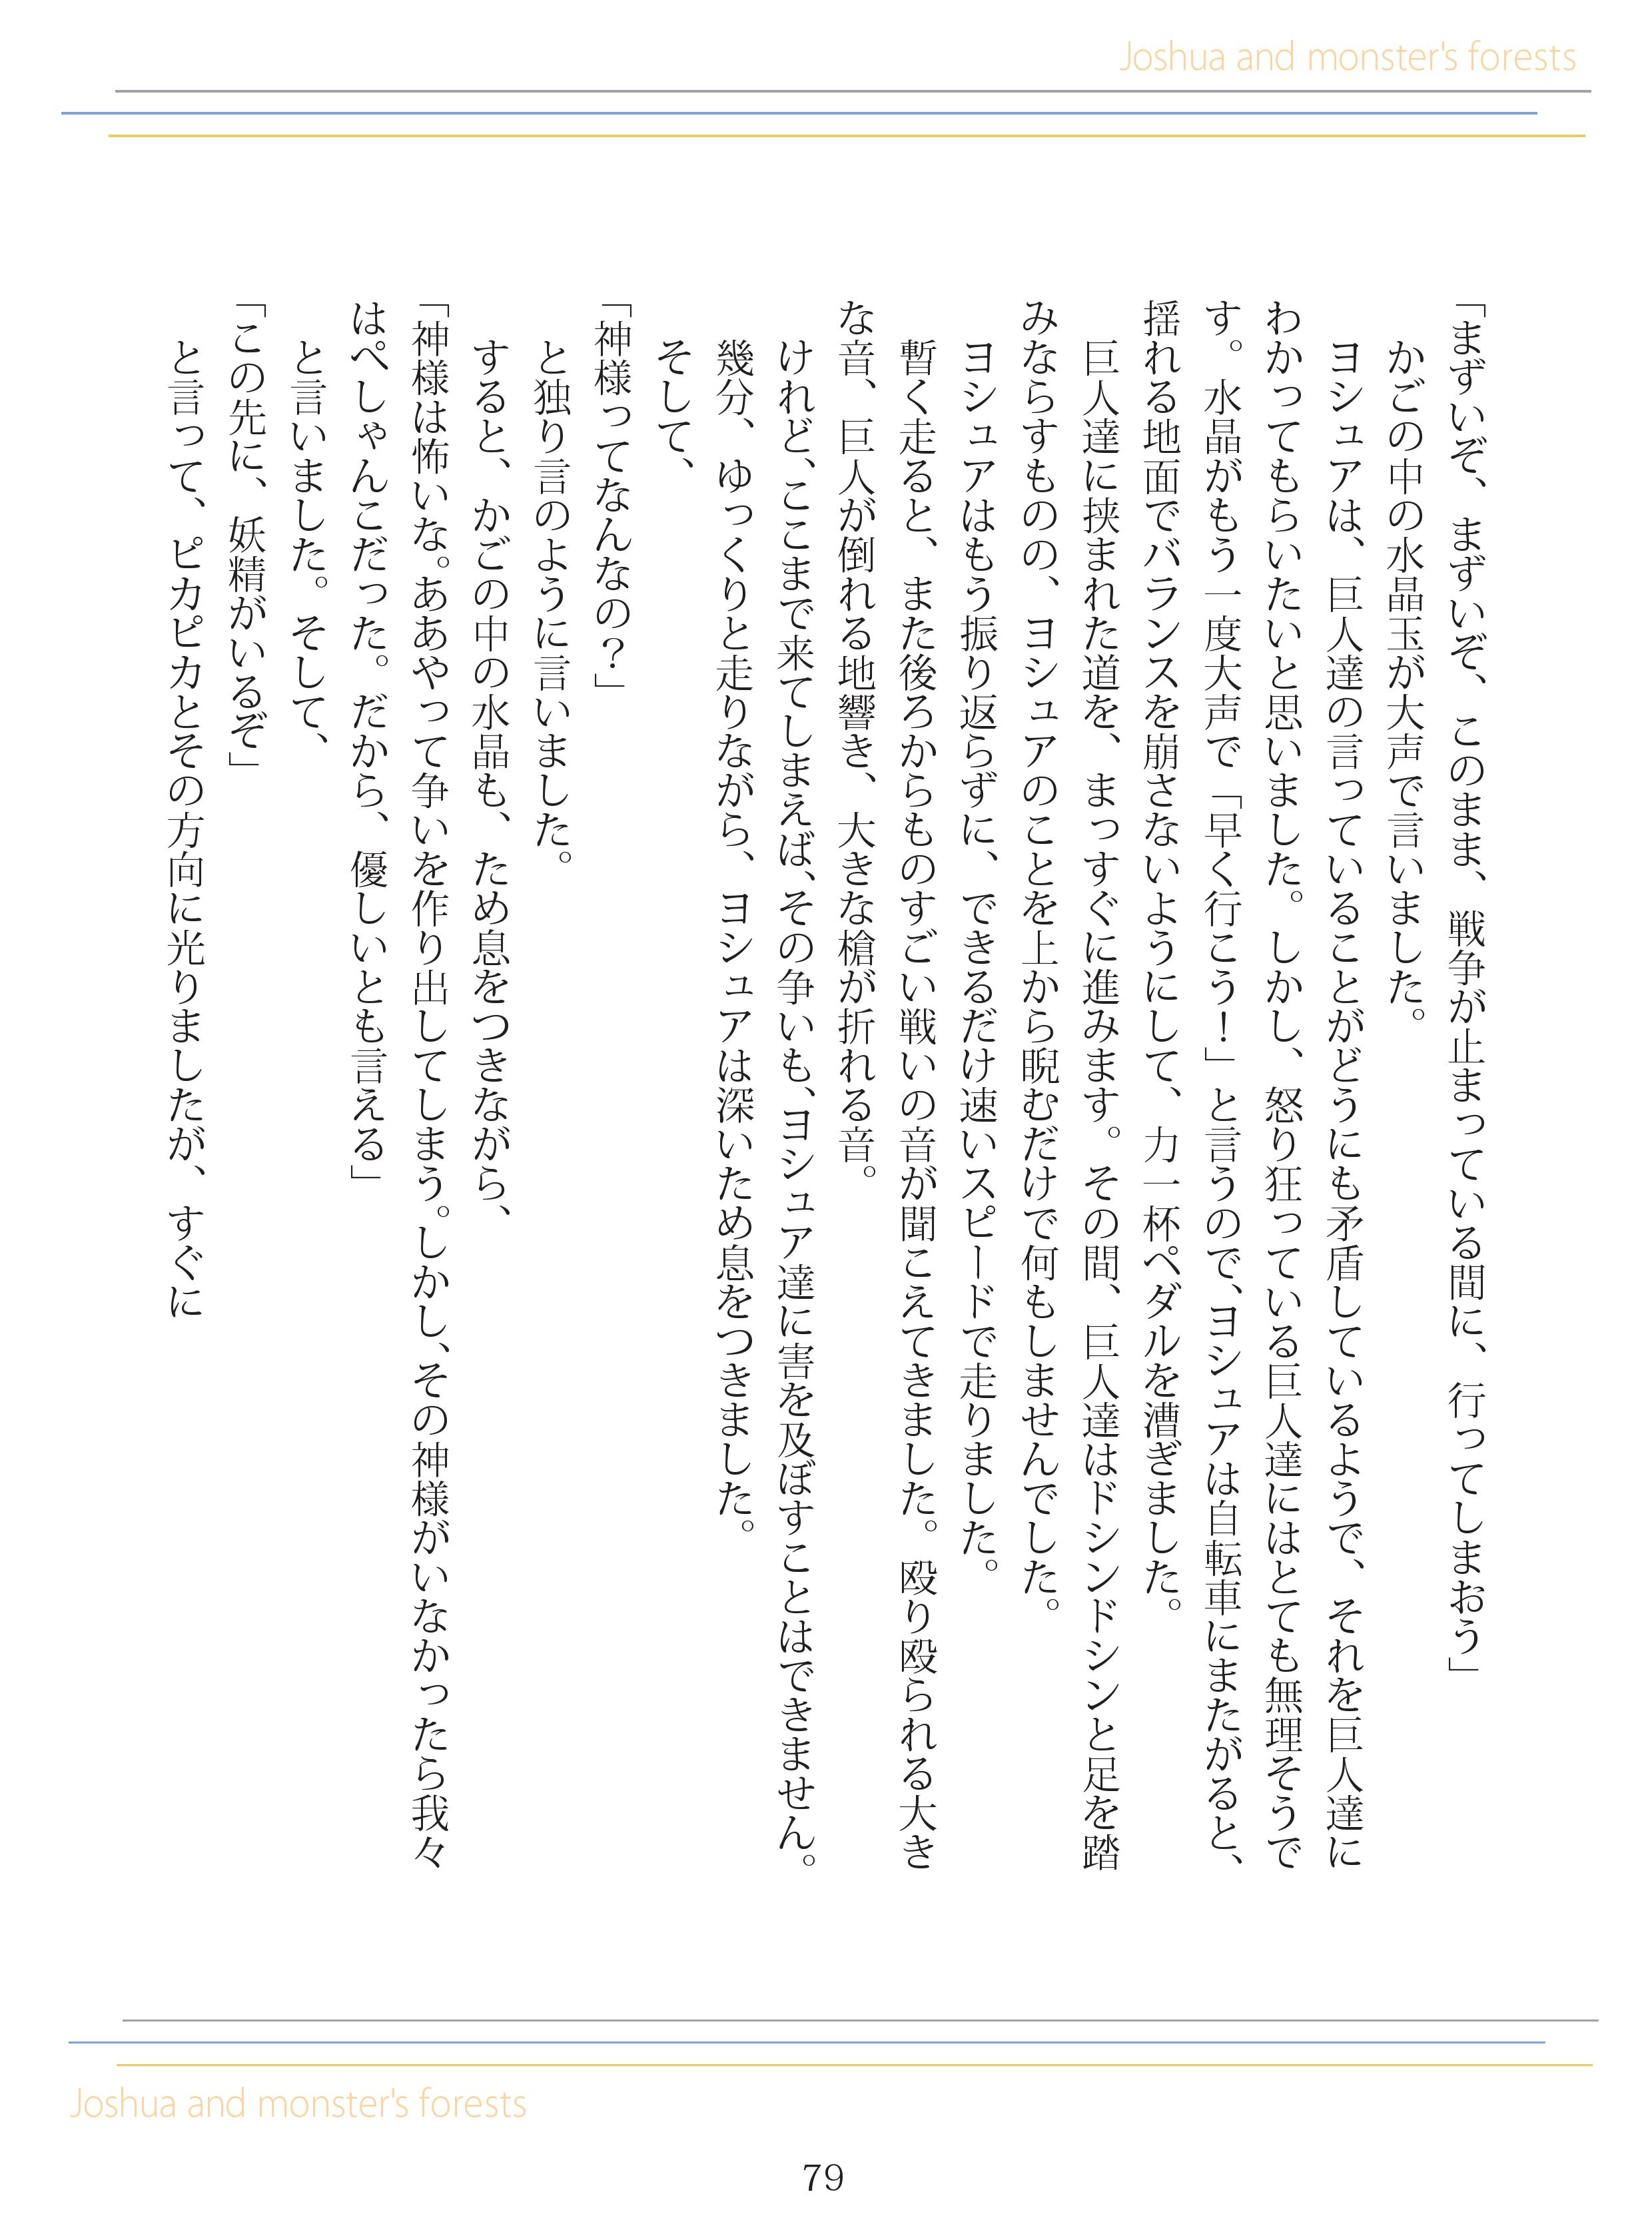 Joshua and monster's forests
「まずいぞ、まずいぞ、このまま、戦争が止まっている間に、行ってしまおう」
かごの中の水晶玉が大声で言いました。
ヨシュアは、巨人達の言っていることがどうにも矛盾しているようで、それを巨人達に
わかってもらいたいと思いました。しかし、怒り狂っている巨人達にはとても無理そうで
す。水晶がもう一度大声で「早く行こう！」と言うので、ヨシュアは自転車にまたがると、
揺れる地面でバランスを崩さないようにして、力一杯ペダルを漕ぎました。
巨人達に挟まれた道を、まっすぐに進みます。その間、巨人達はドシンドシンと足を踏
みならすものの、ヨシュアのことを上から睨むだけで何もしませんでした。
ヨシュアはもう振り返らずに、できるだけ速いスピードで走りました。
暫く走ると、また後ろからものすごい戦いの音が聞こえてきました。殴り殴られる大き
な音、巨人が倒れる地響き、大きな槍が折れる音。
けれど、ここまで来てしまえば、その争いも、ヨシュア達に害を及ぼすことはできません。
幾分、ゆっくりと走りながら、ヨシュアは深いため息をつきました。
そして、
「神様ってなんなの？」
と独り言のように言いました。
すると、かごの中の水晶も、ため息をつきながら、
「神様は怖いな。ああやって争いを作り出してしまう。しかし、その神様がいなかったら我々
はぺしゃんこだった。だから、優しいとも言える」
と言いました。そして、
「この先に、妖精がいるぞ」
と言って、ピカピカとその方向に光りましたが、すぐに
Joshua and monster's forests
79